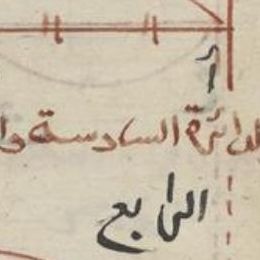 أ
الدائرة السادسة وا
الرابع